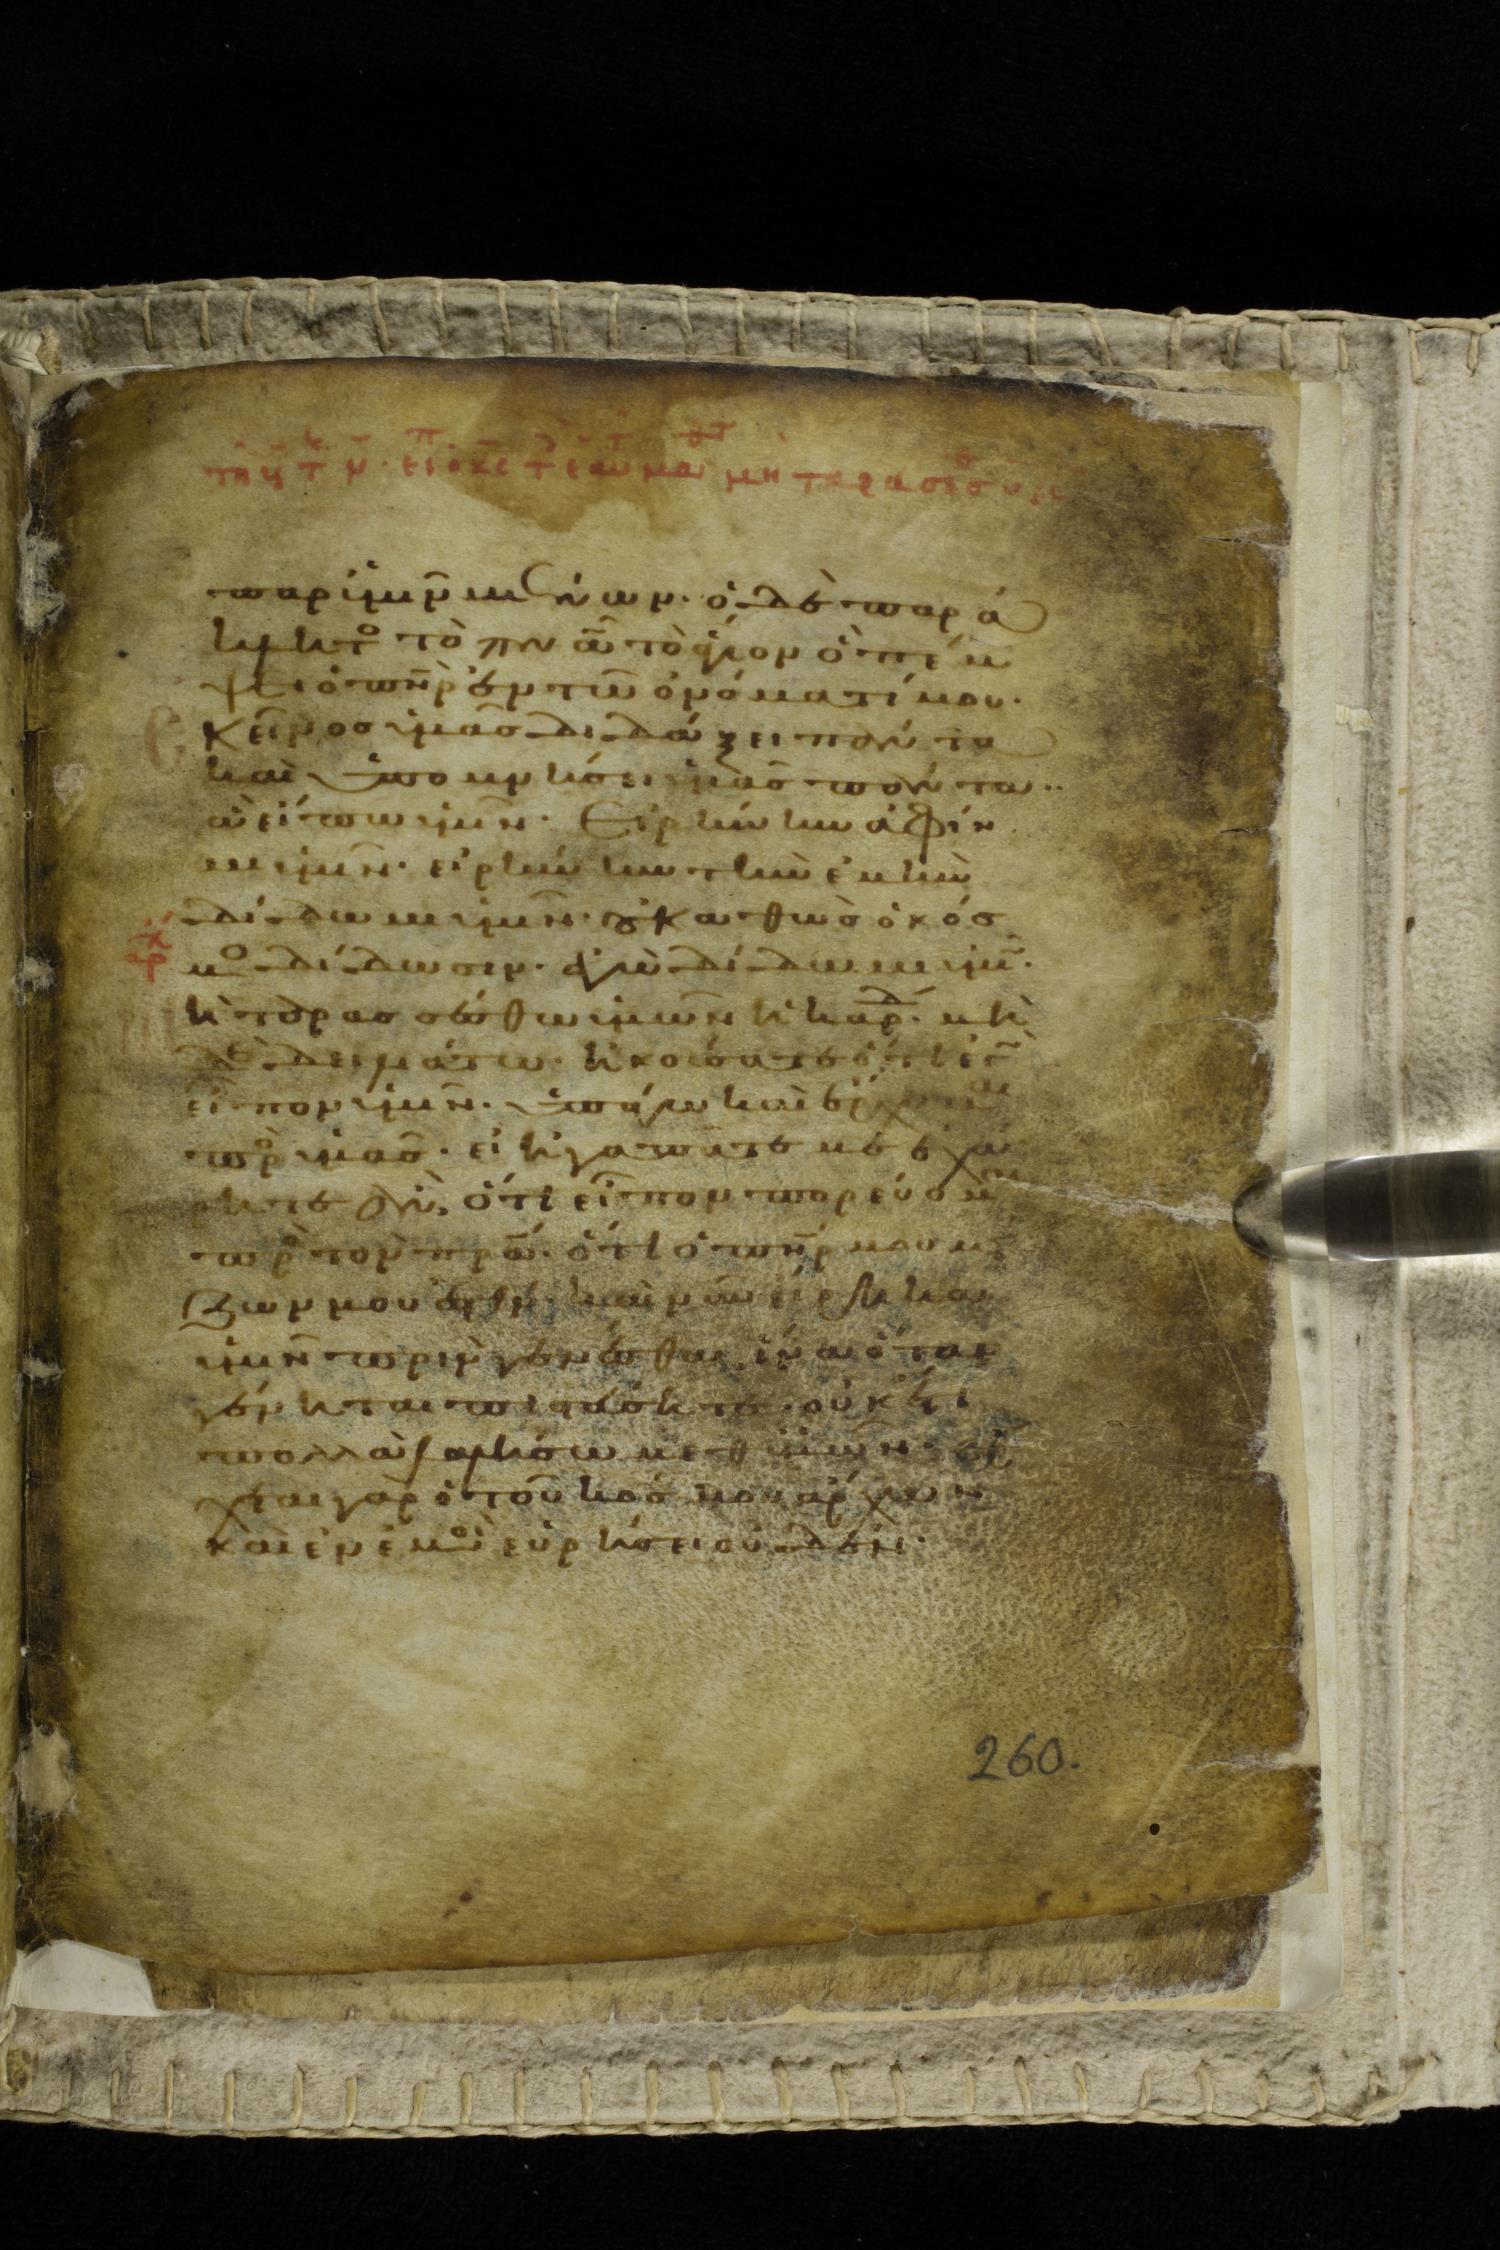 παρ ὑμῖν μένων· ὁ δὲ παρά
κλητο τὸ πνᾶ τὸ ἅγιον ὃ πέμ
ψει ὁ πηρ ἐν τῶ ὀνόματί μου·
κεῖνος ὑμᾶς διδάξει πάντα
καὶ ὑπομνήσει ὑμᾶς πάντα
ἃ εἶπω ὑμῖν· Εἰρήνην ἀφίη
μι ὑμῖν· εἰρήνην τὴν ἐμὴν
δίδωμι ὑμῖν· οὐ καθὼς ὁ κόσ
μο δίδωσιν· ἐγὼ δίδωμι ὑμῖ·
μὴ ταρασσέσθω ὑμῶν ἡ καρδ· μὴ
δὲ δειλιάτω· ἠκούσατε ὅτι ἐγὼ
εἶπον ὑμῖν· ὑπάγω καὶ ἔρχομαι
πρ ὑμᾶς· εἰ ἠγαπᾶτέ με ἐχά
ρητε ἂν, ὅτι εἶπον πορεύομαι
πρ τὸν πρα· ὅτι ὁ πηρ μου μεί
ζων μου ἐστὶν· καὶ νῦν εἴρηκα
ὑμῖν πρὶν γενέσθαι, ἵνα ὅταν
γένηται πιστεύσητε· οὐκέτι
πολλὰ λαλήσω μεθ ὑμῶν· ἔρ
χεται γὰρ ὁ τοῦ κόσμου ἄρχων
καὶ ἐν ἐμοὶ εὑρήσει οὐδέν·
260.